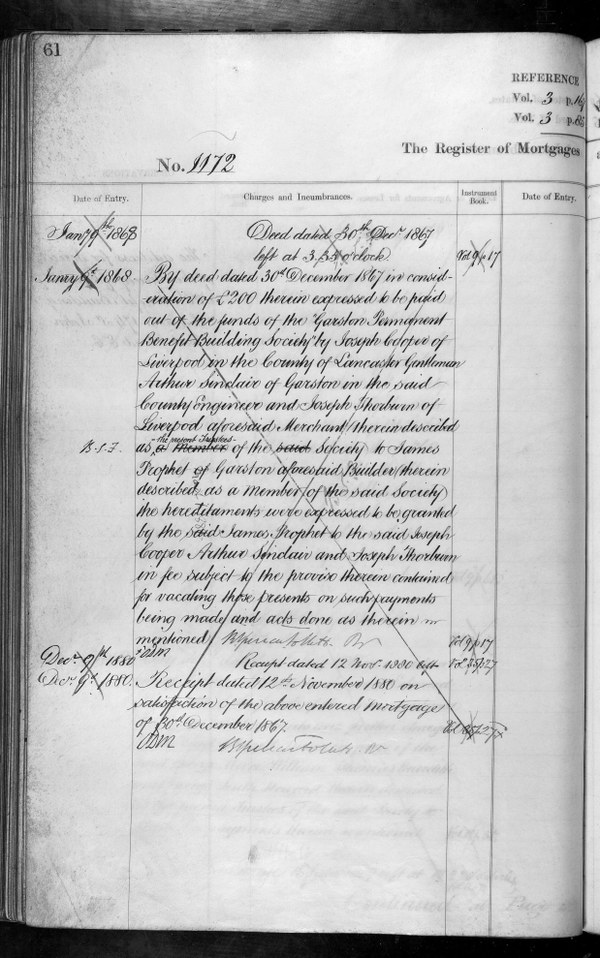 61
REFERENCE
Vol. 3 p.
Vol. 3 p.
The Register of Mortgages
No. 1172
Date of Entry.
Charges and Incumbrances.
Instrument Book.
Date of Entry.
Jany 9th 1868
Deed dated 30th Decr. 1867
left at 3. o'clock
Vol 9 p 17
Janry 9th 1868.
By deed dated 30th December 1867 in consid-
eration of £200 therein expressed to be paid
out of the funds of the "Garston Permanent
Benefit Building Society" by Joseph Cooper of
Liverpool in the County of Lancaster Gentleman
Arthur Sinclair of Garston in the said
County Engineer and Joseph Thorburn of
Liverpool aforesaid Merchant therein described
-the present Trustees-
as a Member of the said Society to James
Prophet of Garston aforesaid Builder therein
described as a member of the said Society
the hereditaments were expressed to be granted
by the said James Prophet to the said Joseph
Cooper Arthur Sinclair and Joseph Thorburn
in fee subject to the proviso therein contained
for vacating those presents on such payments
being made and acts done as therein
mentioned
Vol 9 p 17
Decr. 9th 1880
Receipt dated 12 Novr. 1880
Decr. 9th 1880.
Receipt dated 12th November 1880 on
satisfaction of the above entered mortgage
of 30th December 1867.